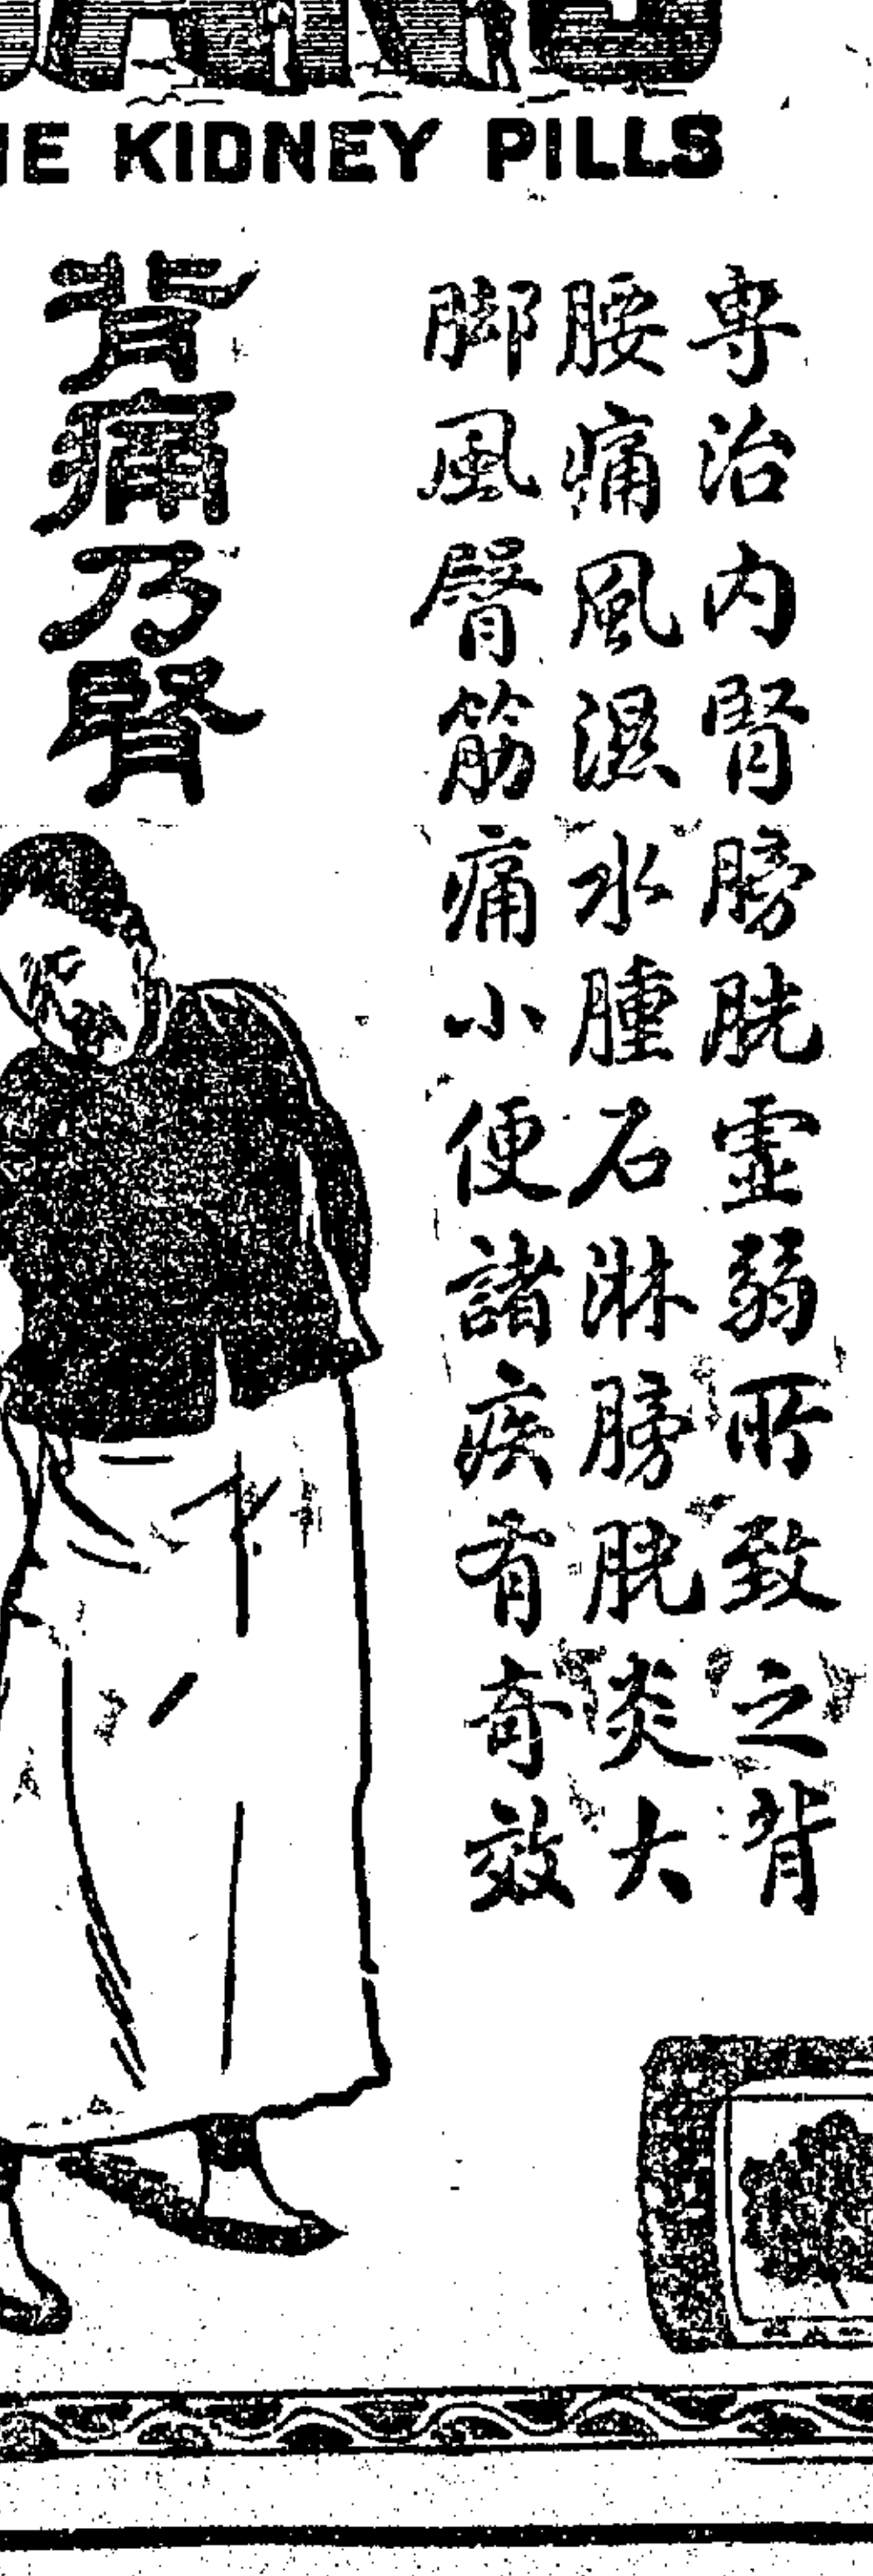 KIDNEY PILLS
専治内腎膀胱虛弱所致之背
腰痛風濕水腫石淋膀胱炎大
脚風臀筋痛小便諸疾有奇效
背痛乃腎